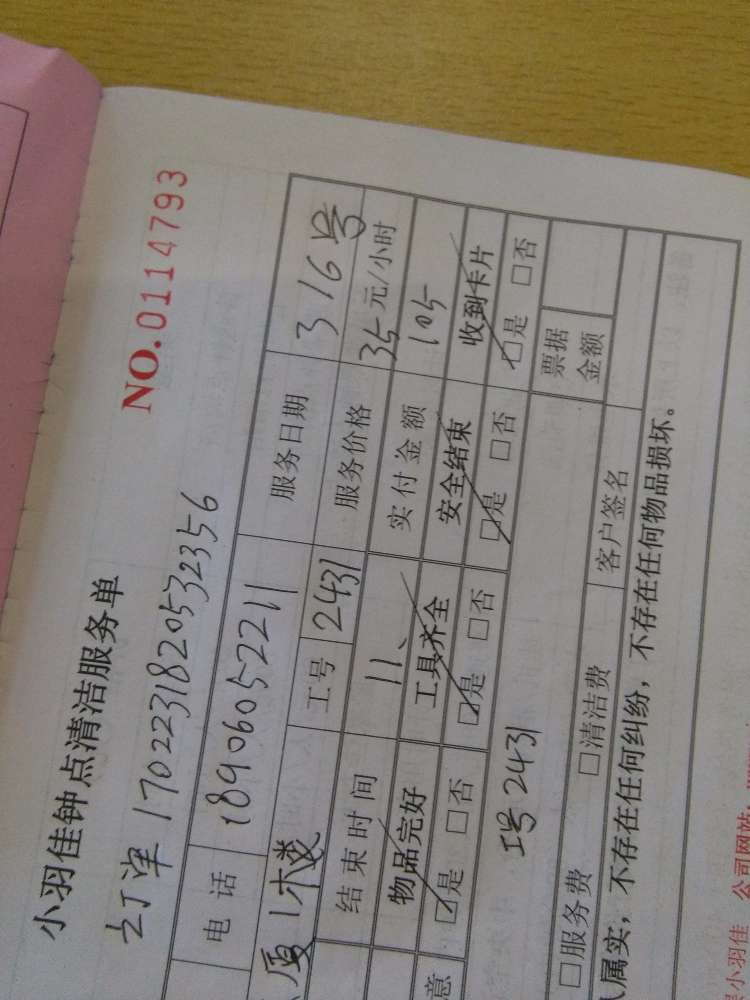 NO.0114793
小羽佳钟点清洁服务单
订单 1702231820532356
电话 18906052211 服务日期 316号
厦 1楼 工号 2431 服务价格 35元/小时
结束时间 11、 实付金额 105
物品完好 工具齐全 安全结束 收到卡片
意 ☑是 □否 ☑是 □否 ☑是 □否 ☑是 □否
工号 2431 票据金额
□服务费 □清洁费 客户签名
属实，不存在任何纠纷，不存在任何物品损坏。
小羽佳 公司网站